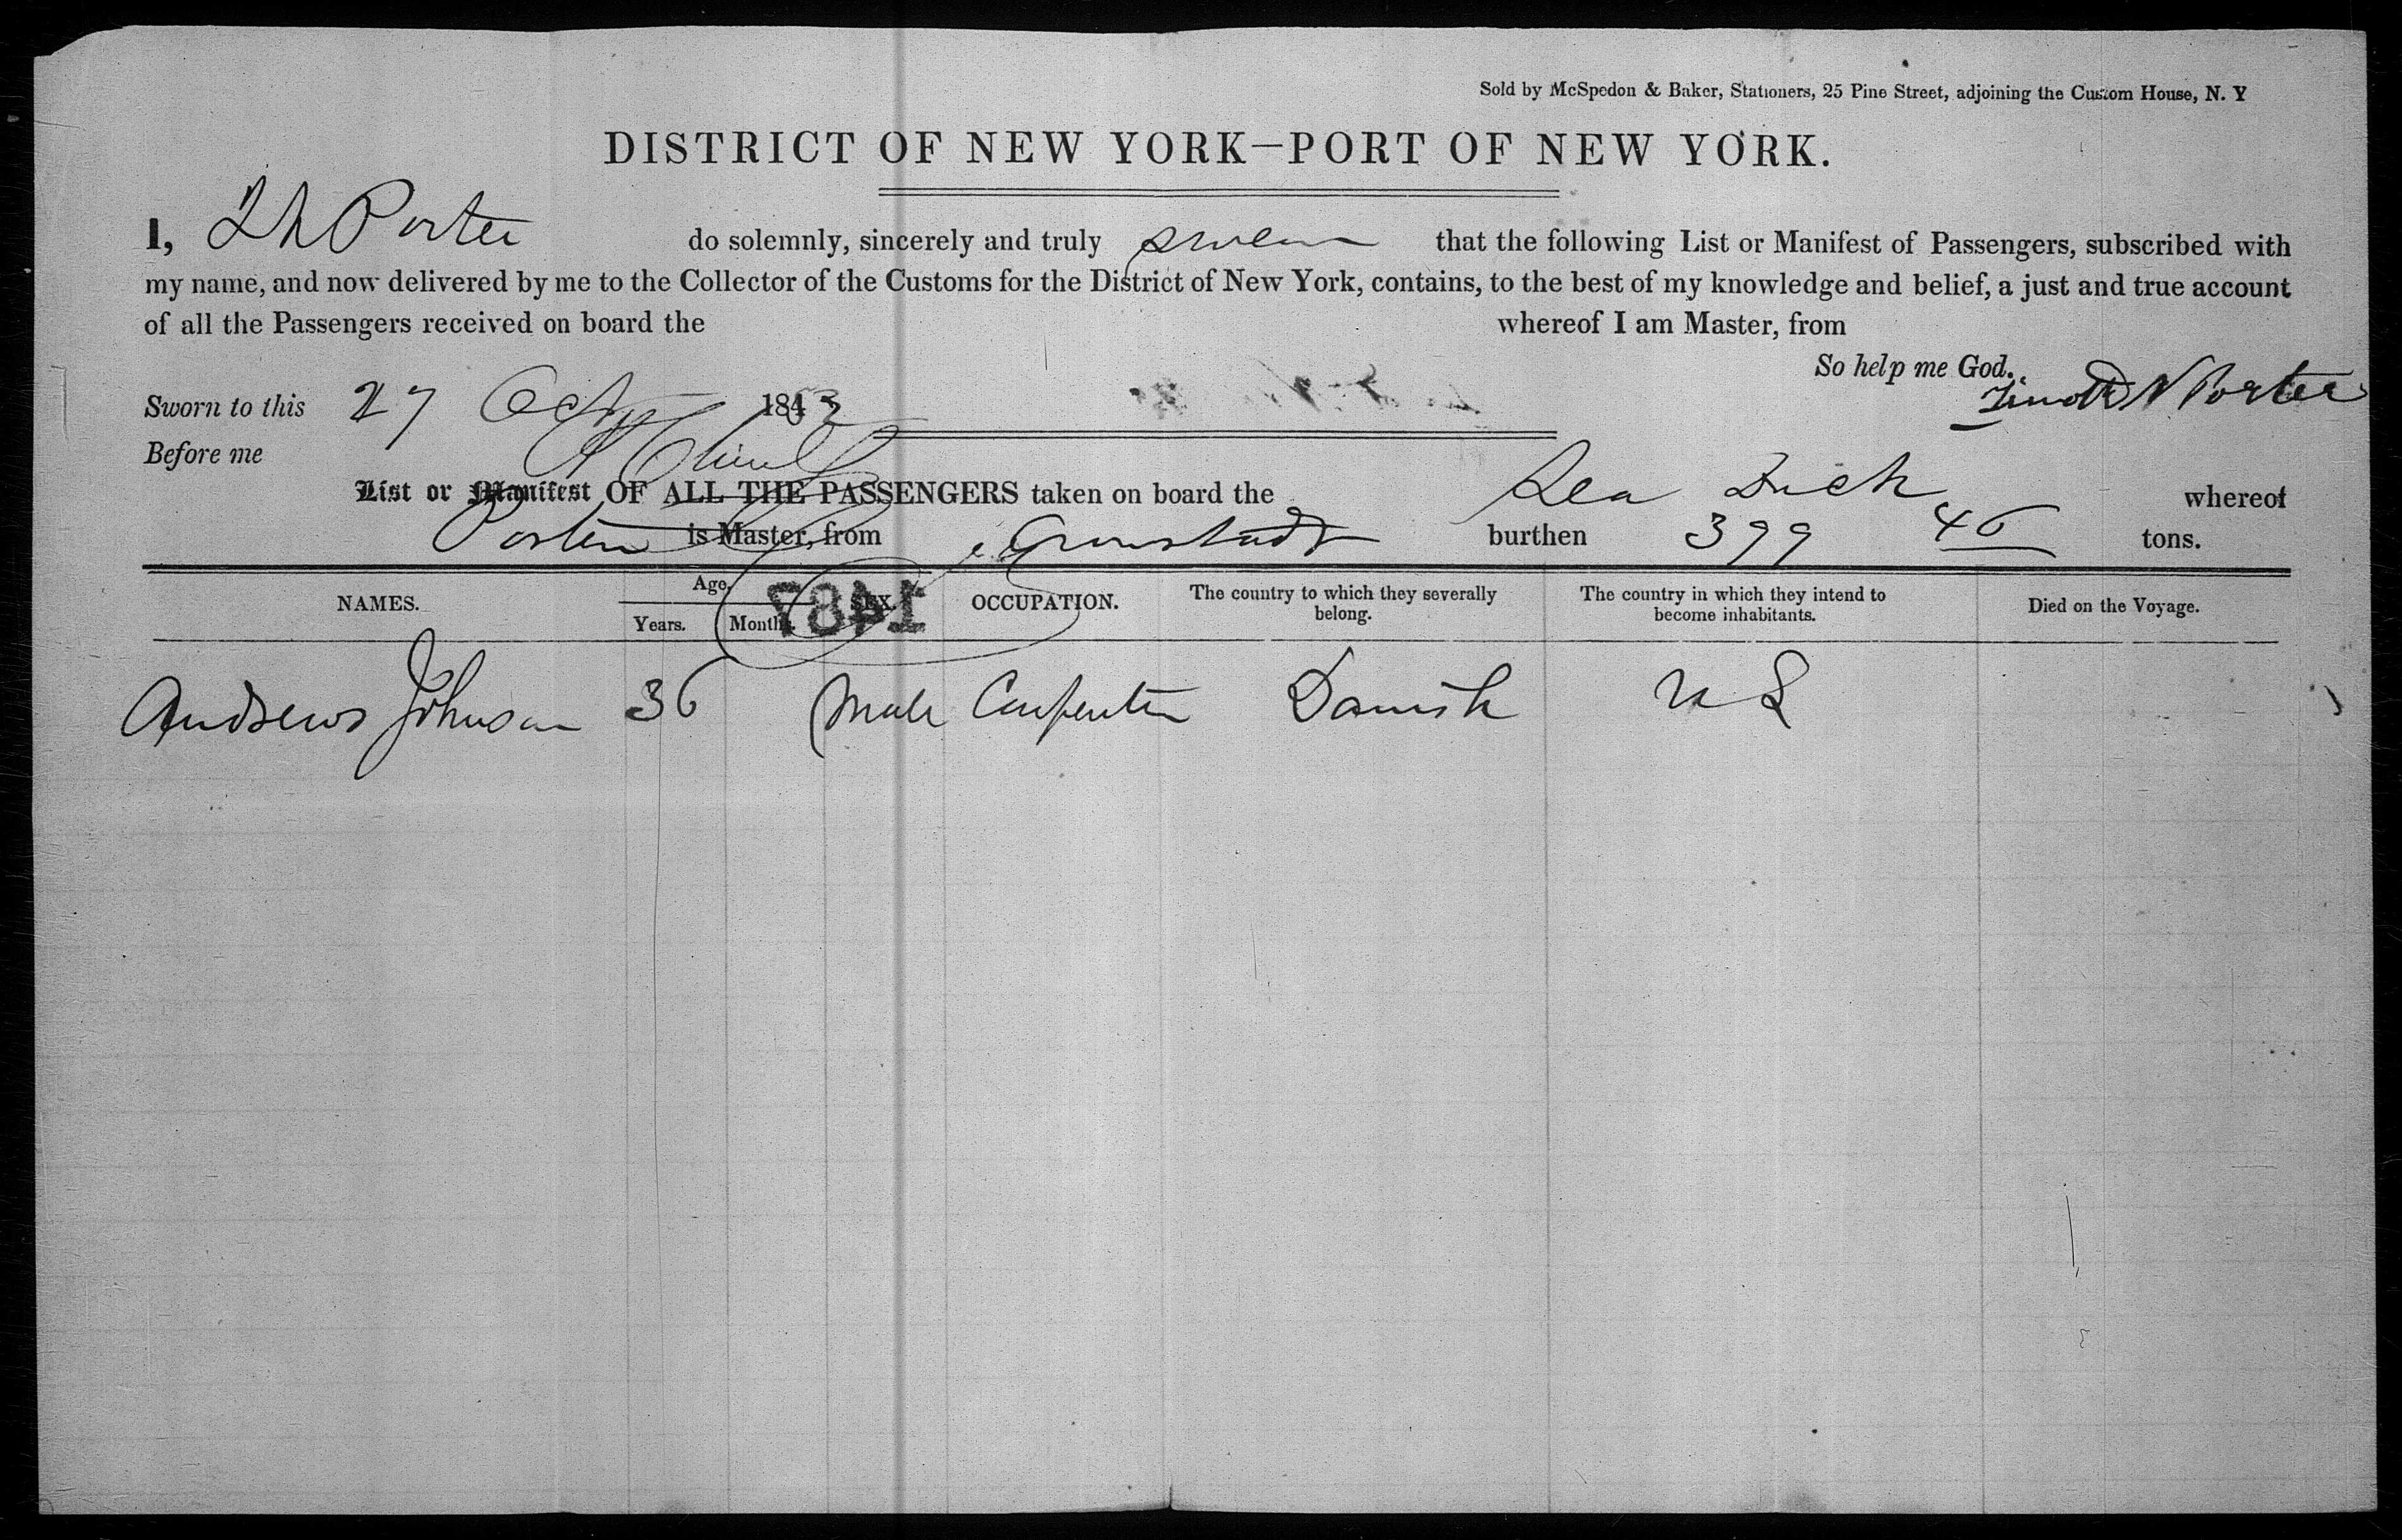 Sold by McSpedon & Baker, Stationers, 25 Pine Street, adjoining the Custom House, N. Y
DISTRICT OF NEW YORK—PORT OF NEW YORK.
I, T N Porter do solemnly, sincerely and truly swear that the following List or Manifest of Passengers, subscribed with
my name, and now delivered by me to the Collector of the Customs for the District of New York, contains, to the best of my knowledge and belief, a just and true account
of all the Passengers received on board the whereof I am Master, from
So help me God.
Sworn to this 27 Oct 1853 Timothy N Porter
Before me
List or Manifest OF ALL THE PASSENGERS taken on board the Sea Duck whereof
Porter is Master, from Cronstadt burthen 399 45 tons.
NAMES. Age, SEX. OCCUPATION. The country to which they severally belong. The country in which they intend to become inhabitants. Died on the Voyage.
Years. Months.
1487
Andrews Johnson 36 Male Carpenter Danish U S